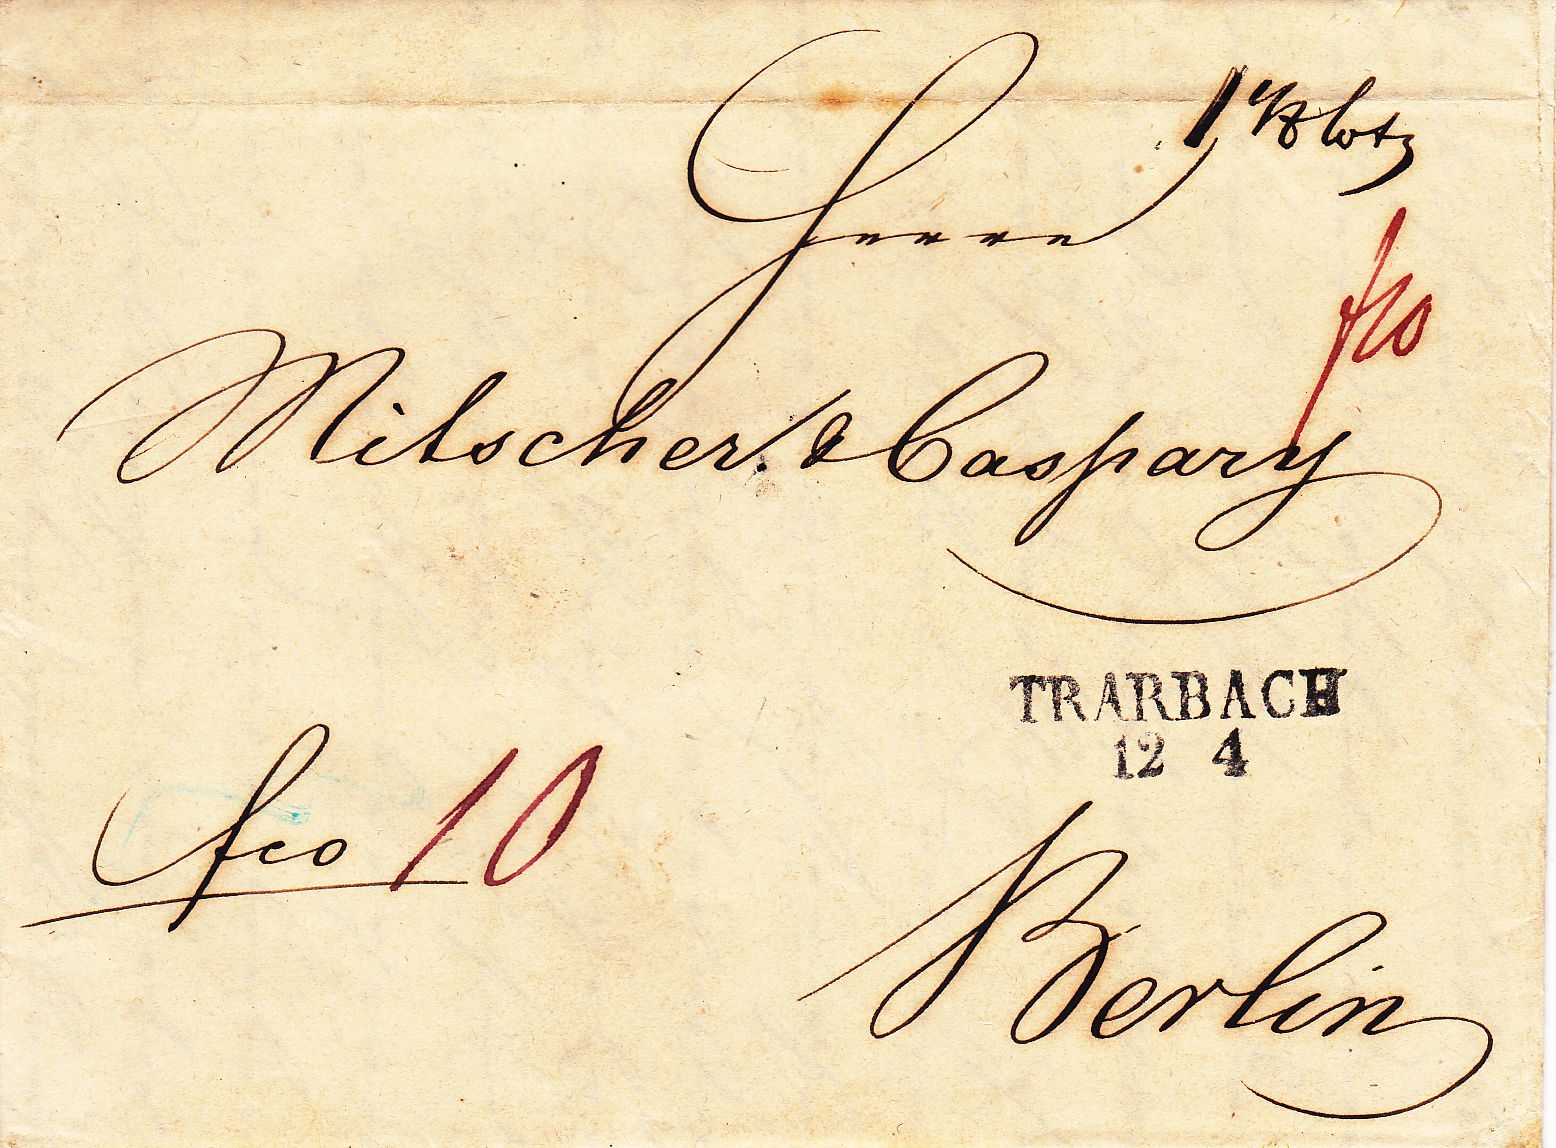 Herrn
fco
Mitscher & Caspary
TRARBACH
12 4
fco 10
Berlin